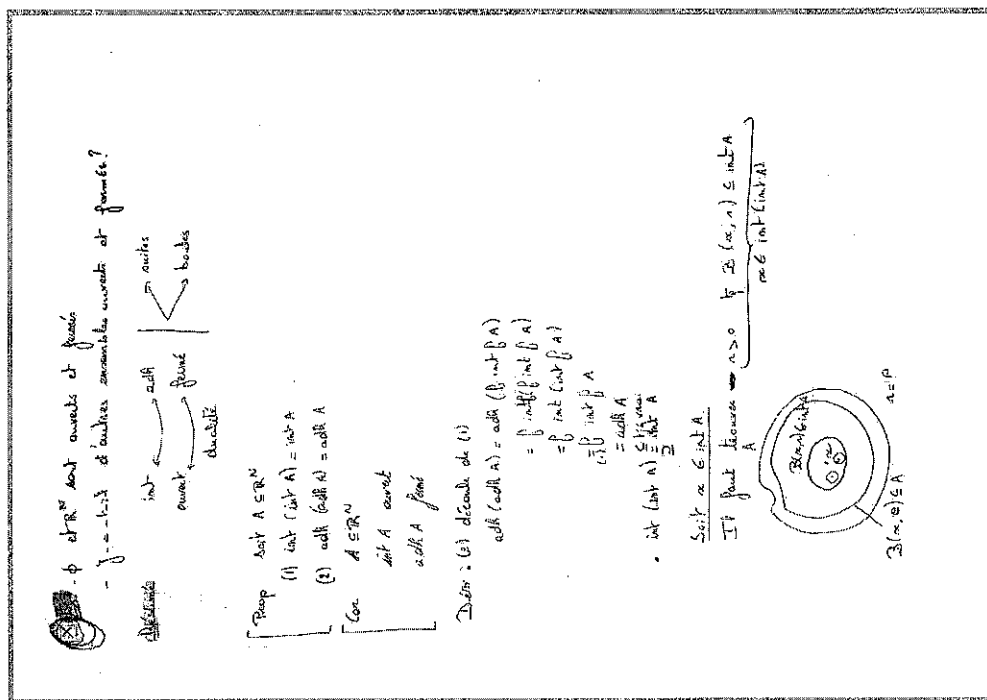 - ϕ et ℝᴺ sont ouverts et fermés
- y-a-t-il d'autres ensembles ouverts et fermés?
int adh suites
ouvert fermé boules
dualité
Prop soit A ⊆ ℝᴺ
(1) int (int A) = int A
(2) adh (adh A) = adh A
Cor A ⊆ ℝᴺ
int A ouvert
adh A fermé
Dém : (2) découle de (1)
adh (adh A) = adh (∁ int ∁ A)
= ∁ int (∁ ∁ int ∁ A)
= ∁ int (int ∁ A)
=(1) ∁ int ∁ A
= adh A
• int (int A) = int A
⊆ vrai
⊇
Soit x ∈ int A
Il faut trouver r > 0 tq B(x, r) ⊆ int A
x ∈ int (int A)
A
B(x, r) ⊆ int A
x
B(x, e) ⊆ A